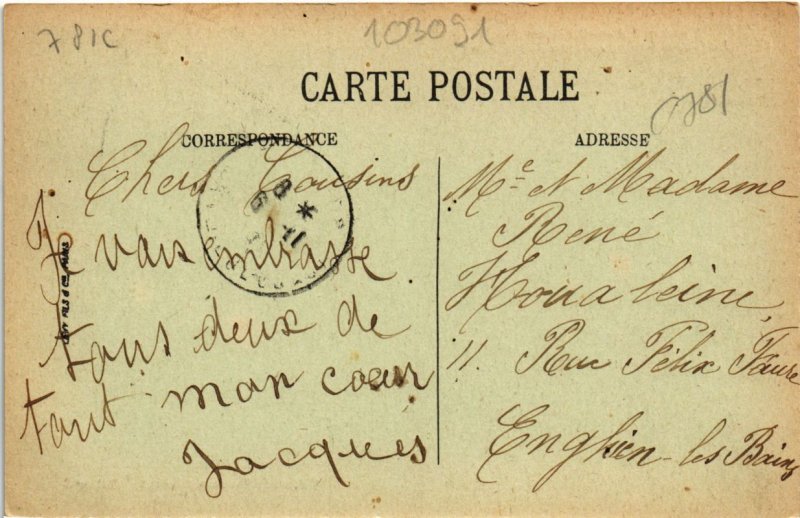 781C
103091
CARTE POSTALE
0781
CORRESPONDANCE
ADRESSE
Chers Cousins
Je vous embrasse
tous deux de
tout mon coeur
Jacques
Me et Madame
René
Houableine
11. Rue Félix Faure
Enghien-les Bains